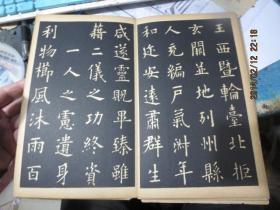 王西暨輪臺北拒
玄闕並地列州縣
人充編戶氣淑年
和迩安遠肅群生
咸遂靈貺畢臻雖
藉二儀之功終資
一人之慮遺身
利物櫛風沐雨百
2016/02/12 18